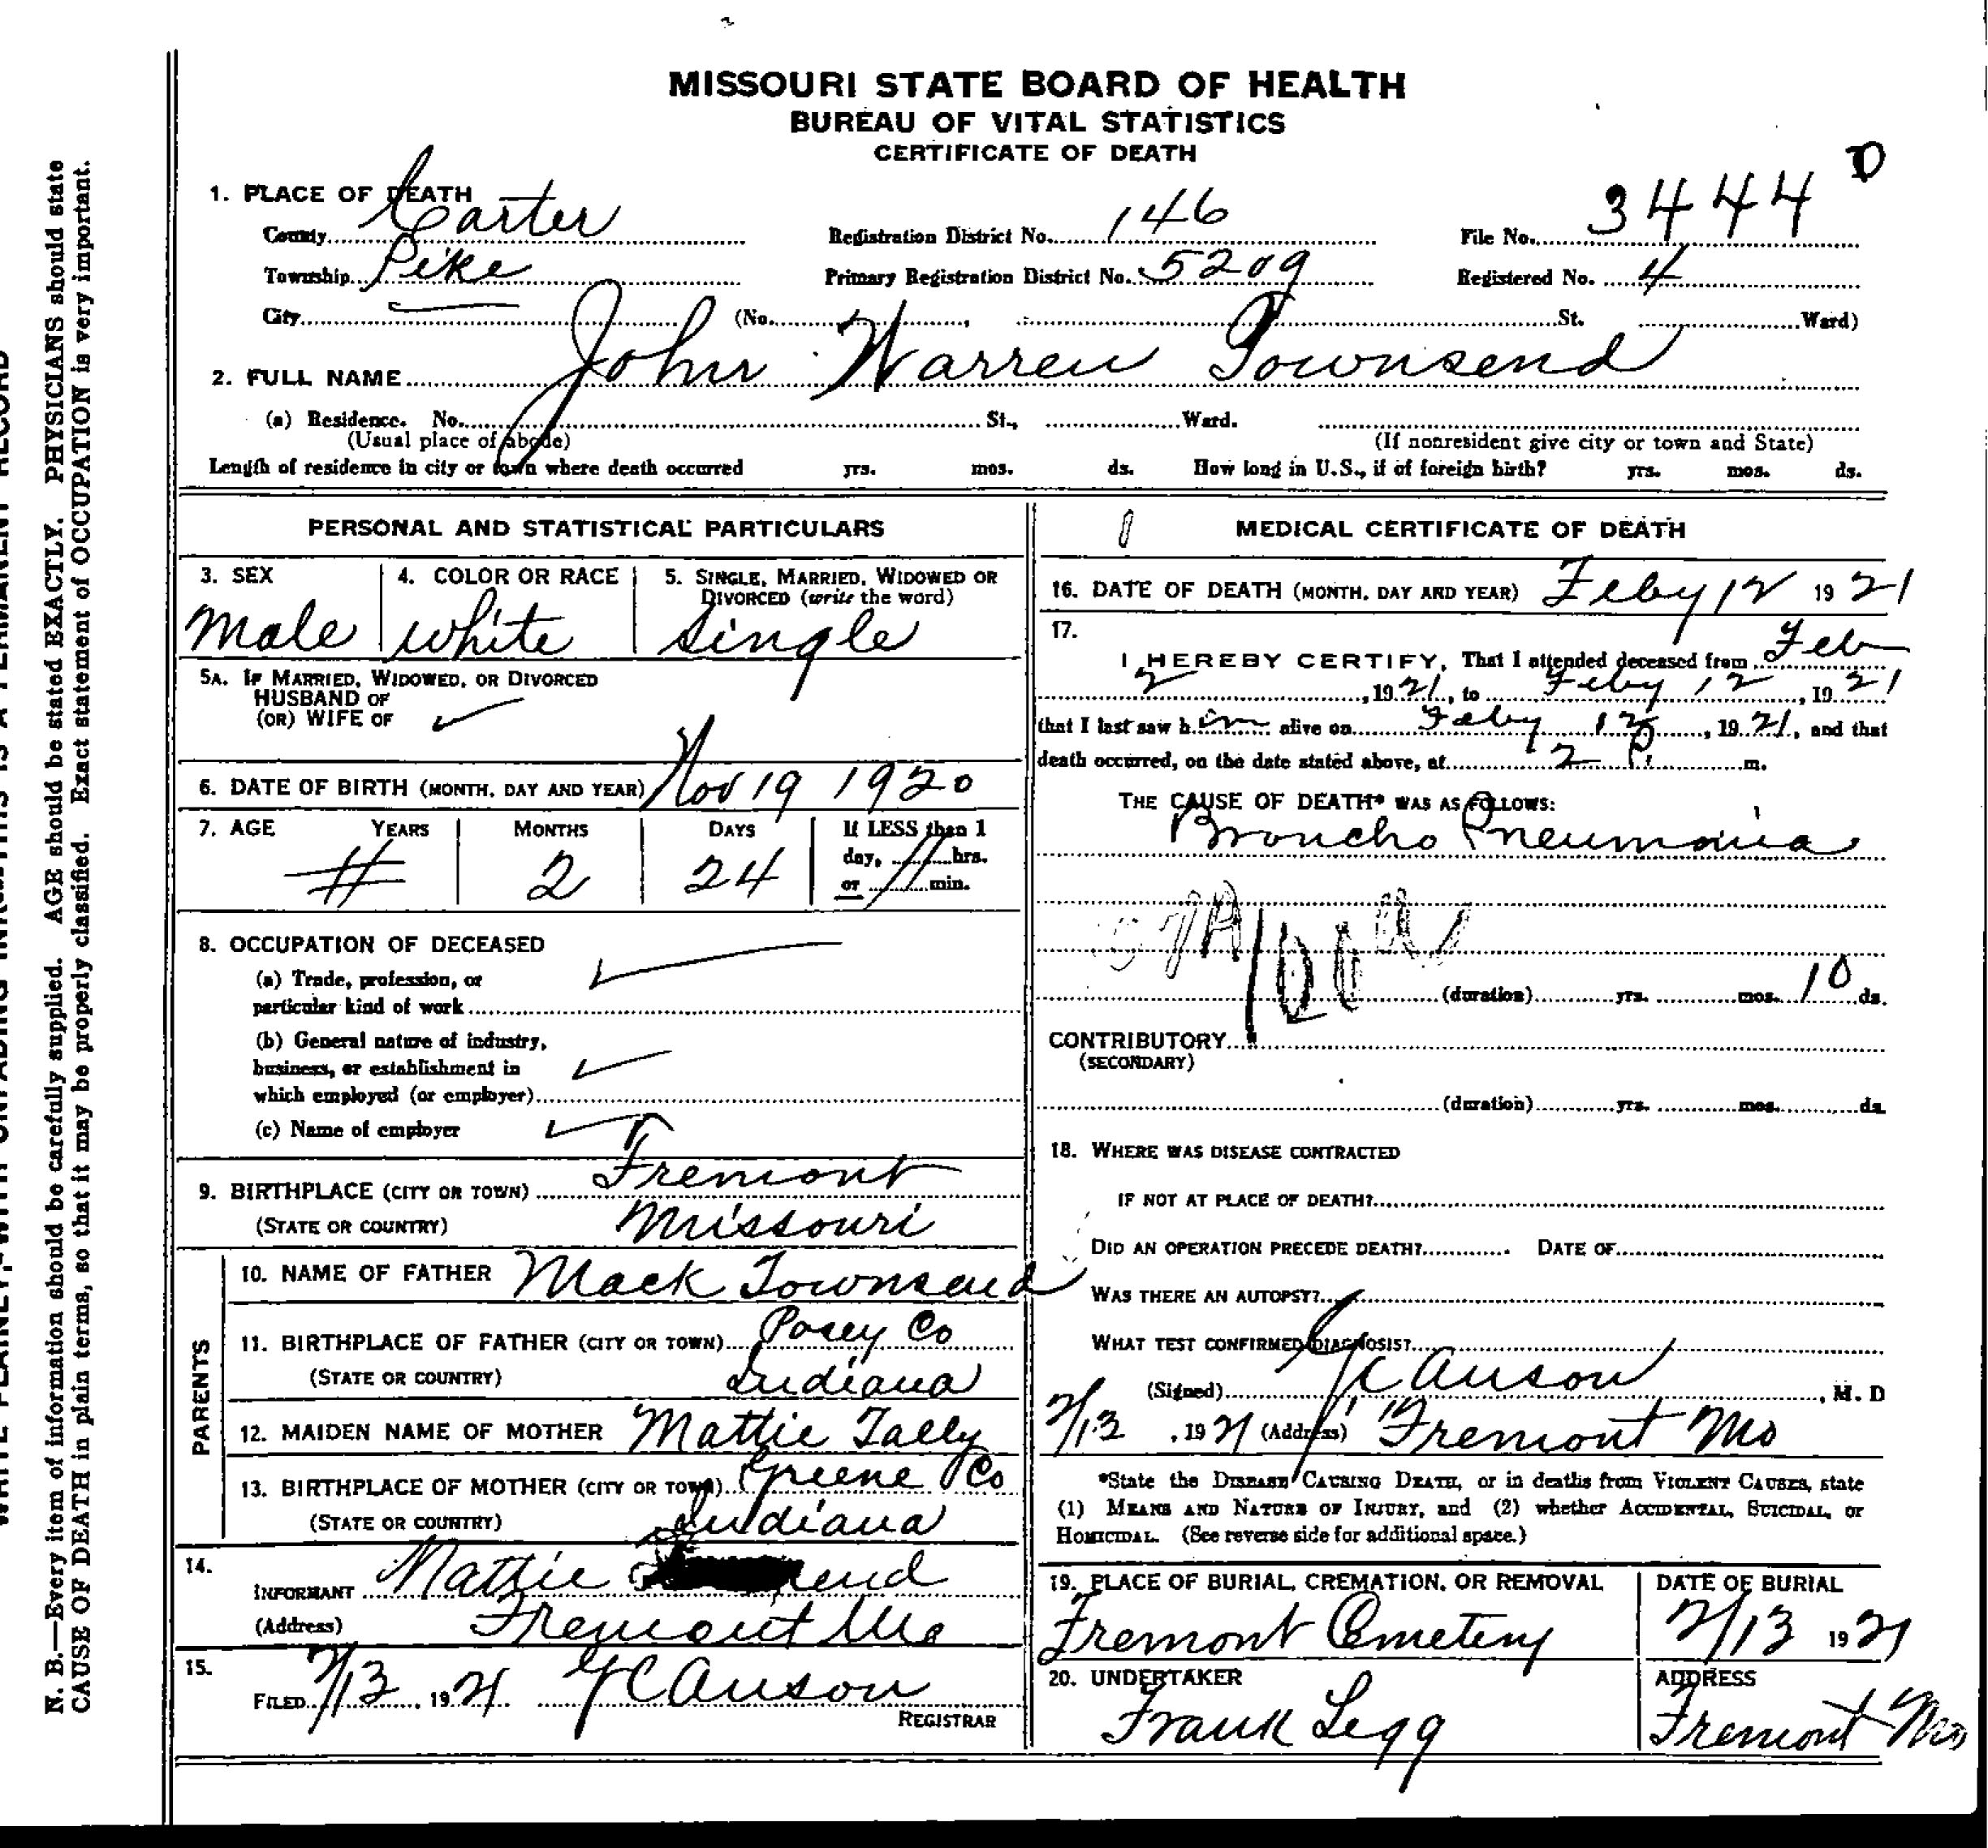 MISSOURI STATE BOARD OF HEALTH
BUREAU OF VITAL STATISTICS
CERTIFICATE OF DEATH
1. PLACE OF DEATH
County Carter Registration District No. 146 File No. 3444 D
Township Pike Primary Registration District No. 5209 Registered No. 4
City (No. , St. Ward)
2. FULL NAME John Warren Townsend
(a) Residence. No. St., Ward.
(Usual place of abode) (If nonresident give city or town and State)
Length of residence in city or town where death occurred yrs. mos. ds. How long in U.S., if of foreign birth? yrs. mos. ds.
PERSONAL AND STATISTICAL PARTICULARS
3. SEX 4. COLOR OR RACE 5. SINGLE, MARRIED, WIDOWED OR
DIVORCED (write the word)
Male white Single
5A. IF MARRIED, WIDOWED, OR DIVORCED
HUSBAND OF
(OR) WIFE OF
6. DATE OF BIRTH (MONTH, DAY AND YEAR) Nov 19 1920
7. AGE YEARS MONTHS DAYS If LESS than 1
day, hrs.
2 24 or min.
8. OCCUPATION OF DECEASED
(a) Trade, profession, or
particular kind of work
(b) General nature of industry,
business, or establishment in
which employed (or employer)
(c) Name of employer
9. BIRTHPLACE (CITY OR TOWN) Fremont
(STATE OR COUNTRY) Missouri
PARENTS
10. NAME OF FATHER Mack Townsend
11. BIRTHPLACE OF FATHER (CITY OR TOWN) Posey Co
(STATE OR COUNTRY) Indiana
12. MAIDEN NAME OF MOTHER Mattie Tally
13. BIRTHPLACE OF MOTHER (CITY OR TOWN) Greene Co
(STATE OR COUNTRY) Indiana
14.
INFORMANT Mattie
(Address) Fremont Mo
15.
FILED 2/13, 1921 Anson
REGISTRAR
MEDICAL CERTIFICATE OF DEATH
16. DATE OF DEATH (MONTH, DAY AND YEAR) Feby 12 1921
17.
I HEREBY CERTIFY, That I attended deceased from Feb
2, 1921, to Feby 12, 1921
that I last saw him alive on Feby 12, 1921, and that
death occurred, on the date stated above, at 2 P. m.
THE CAUSE OF DEATH* WAS AS FOLLOWS:
Broncho Pneumonia
(duration) yrs. mos. 10 ds.
CONTRIBUTORY
(SECONDARY)
(duration) yrs. mos. ds.
18. WHERE WAS DISEASE CONTRACTED
IF NOT AT PLACE OF DEATH?
DID AN OPERATION PRECEDE DEATH? DATE OF
WAS THERE AN AUTOPSY?
WHAT TEST CONFIRMED DIAGNOSIS?
(Signed) Anson, M. D
2/13, 1921 (Address) Fremont Mo
*State the DISEASE CAUSING DEATH, or in deaths from VIOLENT CAUSES, state
(1) MEANS AND NATURE OF INJURY, and (2) whether ACCIDENTAL, SUICIDAL, or
HOMICIDAL. (See reverse side for additional space.)
19. PLACE OF BURIAL, CREMATION, OR REMOVAL DATE OF BURIAL
Fremont Cemetery 2/13 1921
20. UNDERTAKER ADDRESS
Frank Legg Fremont Mo
N. B.—Every item of information should be carefully supplied. AGE should be stated EXACTLY. PHYSICIANS should state
CAUSE OF DEATH in plain terms, so that it may be properly classified. Exact statement of OCCUPATION is very important.